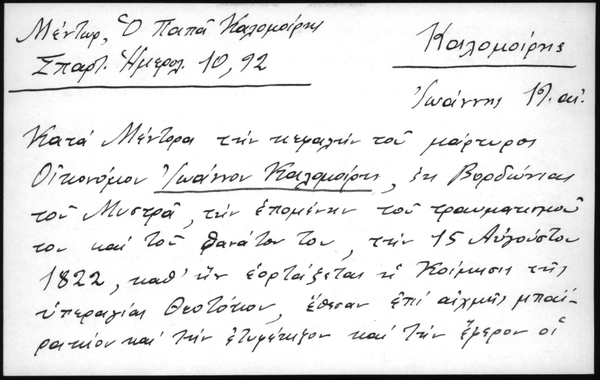 Μέντωρ, Ὁ Παπᾶ Καλομοίρης
Σπαρτ. Ἡμερολ. 10, 92
Καλομοίρης
Ἰωάννης 19. αἰ.
Κατά Μέντορα τήν κεφαλήν τοῦ μάρτυρος
Οἰκονόμου Ἰωάννου Καλομοίρη, ἐκ Βορδώνιας
τοῦ Μυστρᾶ, τήν ἑπομένην τοῦ τραυματισμοῦ
του καί τοῦ θανάτου του, τήν 15 Αὐγούστου
1822, καθ' ἥν ἑορτάζεται ἡ Κοίμησις τῆς
ὑπεραγίας Θεοτόκου, ἔθεσαν ἐπί αἰχμῆς μπαϊ-
ρακίου καί τήν καί τήν οἱ